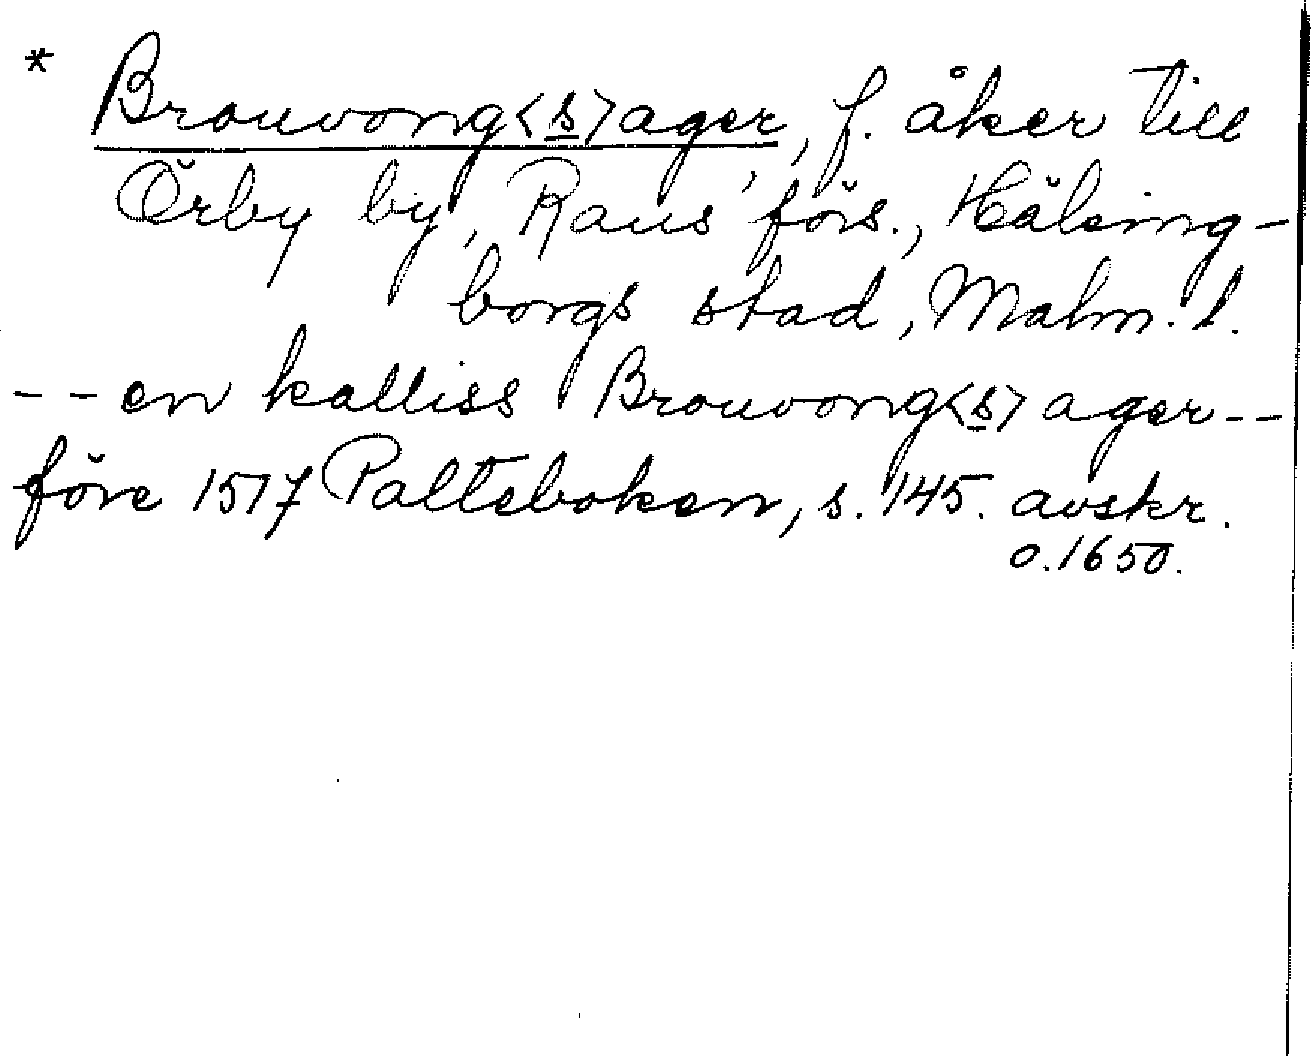 * Brouvong<s>ager, f. åker till
Örby by, Raus' förs., Hälsing-
borgs stad, Malm. l.
-- en kalliss Brouvong<s> ager --
före 1517 Palteboken, s. 145. avskr.
o. 1650.